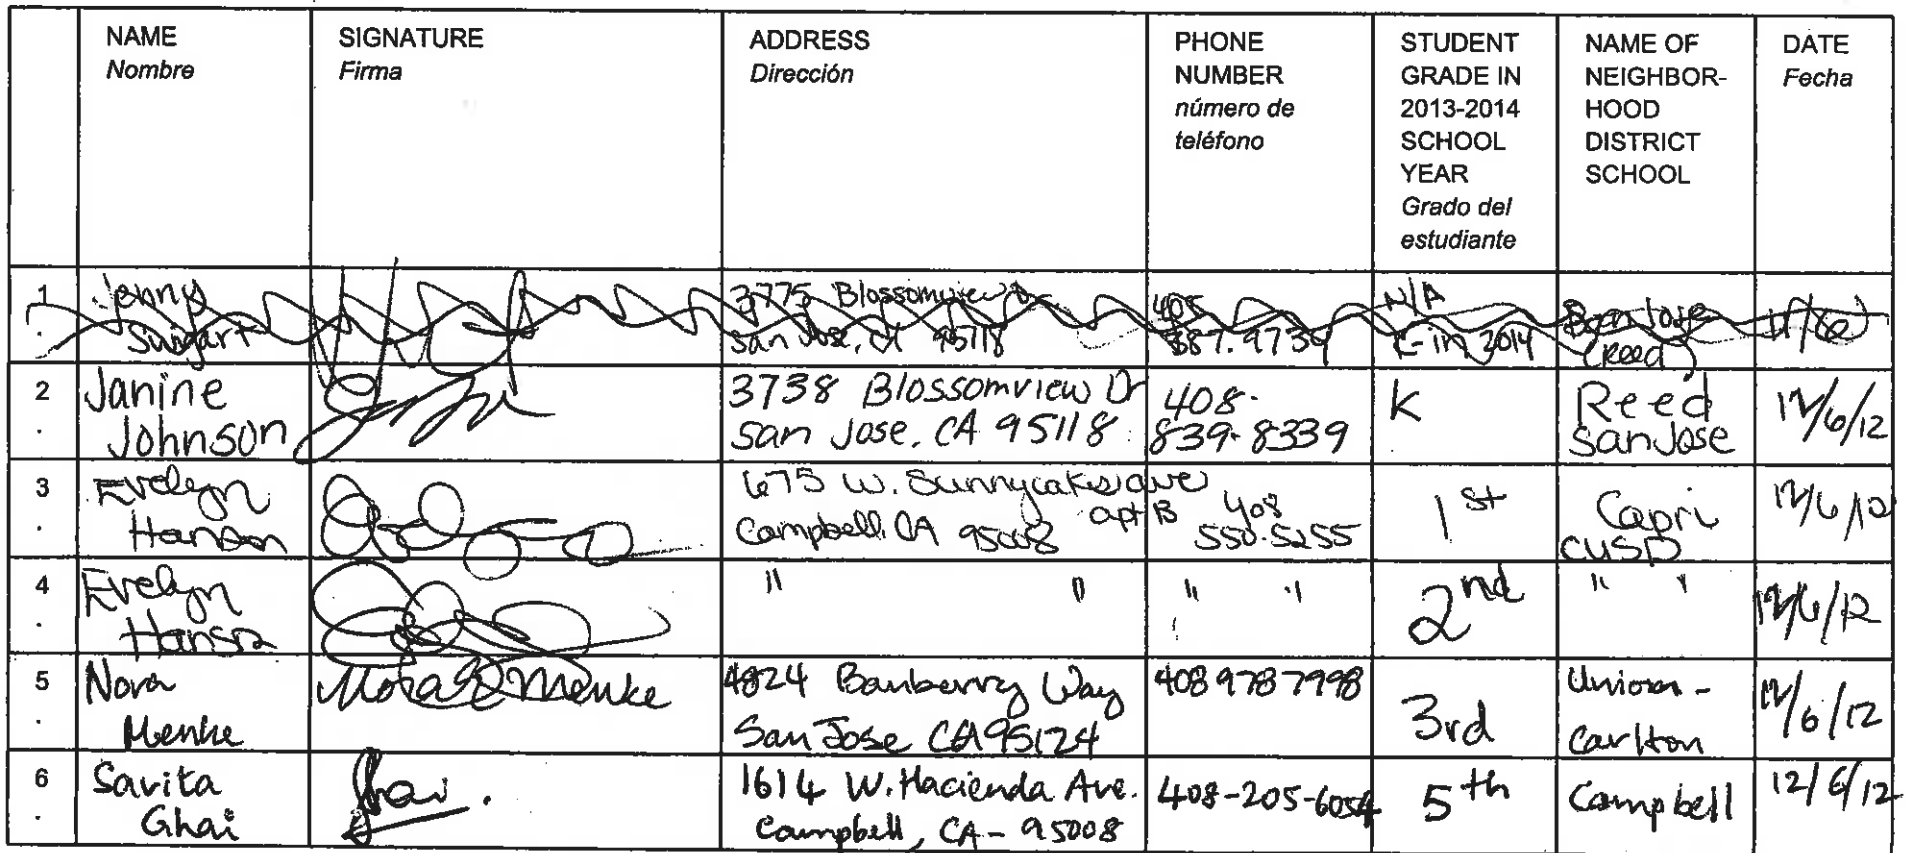 NAME
Nombre
SIGNATURE
Firma
ADDRESS
Dirección
PHONE
NUMBER
número de
teléfono
STUDENT
GRADE IN
2013-2014
SCHOOL
YEAR
Grado del
estudiante
NAME OF
NEIGHBOR-
HOOD
DISTRICT
SCHOOL
DATE
Fecha
1
.
Jenny
3775 Blossomview
San Jose, CA 95118
N/A
K-in 2014
San Jose
(Reed)
2
.
Janine
Johnson
3738 Blossomview Dr
San Jose, CA 95118
408-
839-8339
K
Reed
San Jose
12/6/12
3
.
Evelyn
Hanson
675 W. Sunnyoaks ave
Campbell, CA 95008 apt B
408
550-5255
1st
Capri
CUSD
12/6/12
4
.
Evelyn
Hanson
" "
" "
2nd
" "
12/6/12
5
.
Nora
Menke
Nora Menke
4824 Banberry Way
San Jose CA 95124
408 978 7998
3rd
Union-
Carlton
12/6/12
6
.
Savita
Ghai
Ghai.
1614 W. Hacienda Ave.
Campbell, CA - 95008
408-205-6054
5th
Campbell
12/6/12